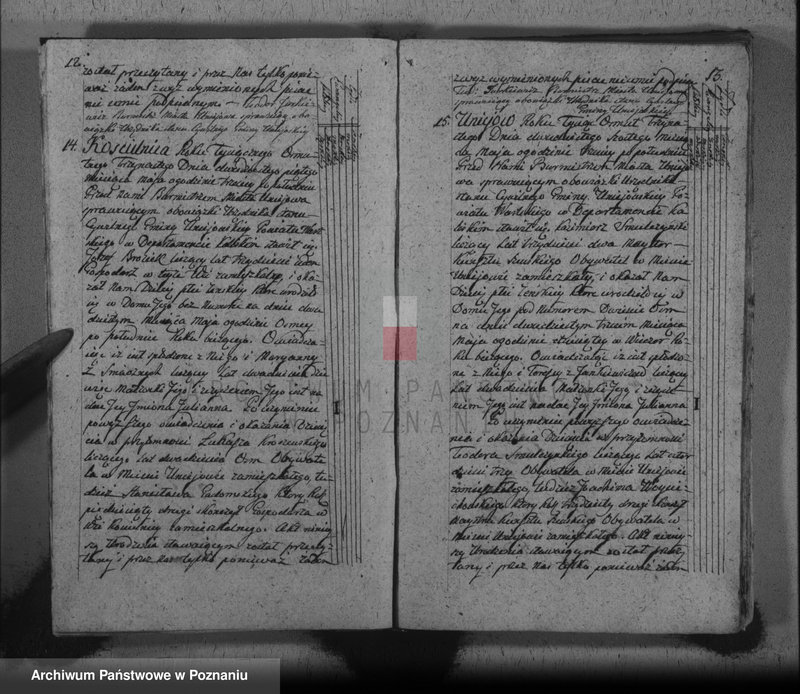 12.
został przeczytany i przez Nas tylko ponie-
waż żaden z wyż wymienionych pisać
nie umie podpisany.
Burmistrz Miasta Uniejowa sprawujący obo-
wiązki Urzędnika stanu Cywilnego Gminy Uniejowskiej
14. Kościelnica Roku tysiącznego Ośmse-
tnego trzynastego Dnia dwudziestego piątego
Miesiąca Maja o godzinie trzeciej po południu
Przed Nami Burmistrzem Miasta Uniejowa
sprawującym obowiązki Urzędnika stanu
Cywilnego Gminy Uniejowskiej Powiatu Wart-
skiego w Departamencie Kaliskim stawił się
Józef liczący lat trzydzieści
Gospodarz w tejże Wsi zamieszkały, i oka-
zał nam Dziecię płci żeńskiej które urodziło
się w Domu Jego bez numeru na dniu dwu-
dziestym Miesiąca Maja o godzinie Ósmej
po południu Roku bieżącego. Oświadcza-
jąc iż jest spłodzone z Niego i Maryanny
z liczącej lat dwadzieścia dzie-
więć Małżonki Jego i życzeniem Jego jest na-
dać Jej Imiona Julianna. Po uczynieniu
powyższego oświadczenia i okazania Dzieci-
cia w przytomności Łukasza
liczącego lat dwadzieścia Ośm Obywate-
la w Mieście Uniejowie zamieszkałego, tu-
dzież Stanisława który Rok
pięćdziesiąty drugi skończył Gospodarza w
Wsi Kościelnicy zamieszkałego. Akt niniej-
szy Urodzenia stawającym został przeczy-
tany i przez nas tylko ponieważ żaden
13.
z wyż wymienionych pisać nie umie podpisa
Burmistrz Miasta Uniejowa
sprawujący obowiązki Urzędnika stanu Cywilnego
Gminy Uniejowskiej
15. Uniejów Roku tysiąc Ośmset trzyna-
stego Dnia dwudziestego szóstego miesią-
ca Maja o godzinie trzeciej po południu
Przed Nami Burmistrzem Miasta Uniejo-
wa sprawującym obowiązki Urzędnika
stanu Cywilnego Gminy Uniejowskiej Po-
wiatu Wartskiego w Departamencie Ka-
liskim stawił się Kazimierz Smulczyński
liczący lat trzydzieści dwa Majster
Kunsztu Obywatel w Mieście
Uniejowie zamieszkały, i okazał Nam
Dziecię płci żeńskiej które urodziło się w
Domu Jego pod Numerem Dwieście Ośm
na dniu dwudziestym trzecim Miesiąca
Maja o godzinie dziesiątej w Wieczor Ro-
ku bieżącego. Oświadczając iż jest spłodzo-
ne z Niego i Teresy z Jankiewiczów liczącej
lat dwadzieścia Małżonki Jego, i życze-
niem Jego jest nadać Jej Imiona Julianna
Po uczynieniu powyższego oświadcze-
nia i okazania Dziecięcia w przytomności
Teodora Smulczyńskiego liczącego lat czter-
dzieści trzy Obywatela w Mieście Uniejowie
zamieszkałego, tudzież Joachima
który Rok trzydziesty drugi skończył
Majstra Kunsztu Obywatela w
Mieście Uniejowie zamieszkałego. Akt niniej-
szy Urodzenia stawającym został przeczy-
tany i przez nas tylko ponieważ żaden
ARCHIWUM PAŃSTWOWE
W POZNANIU
Archiwum Państwowe w Poznaniu